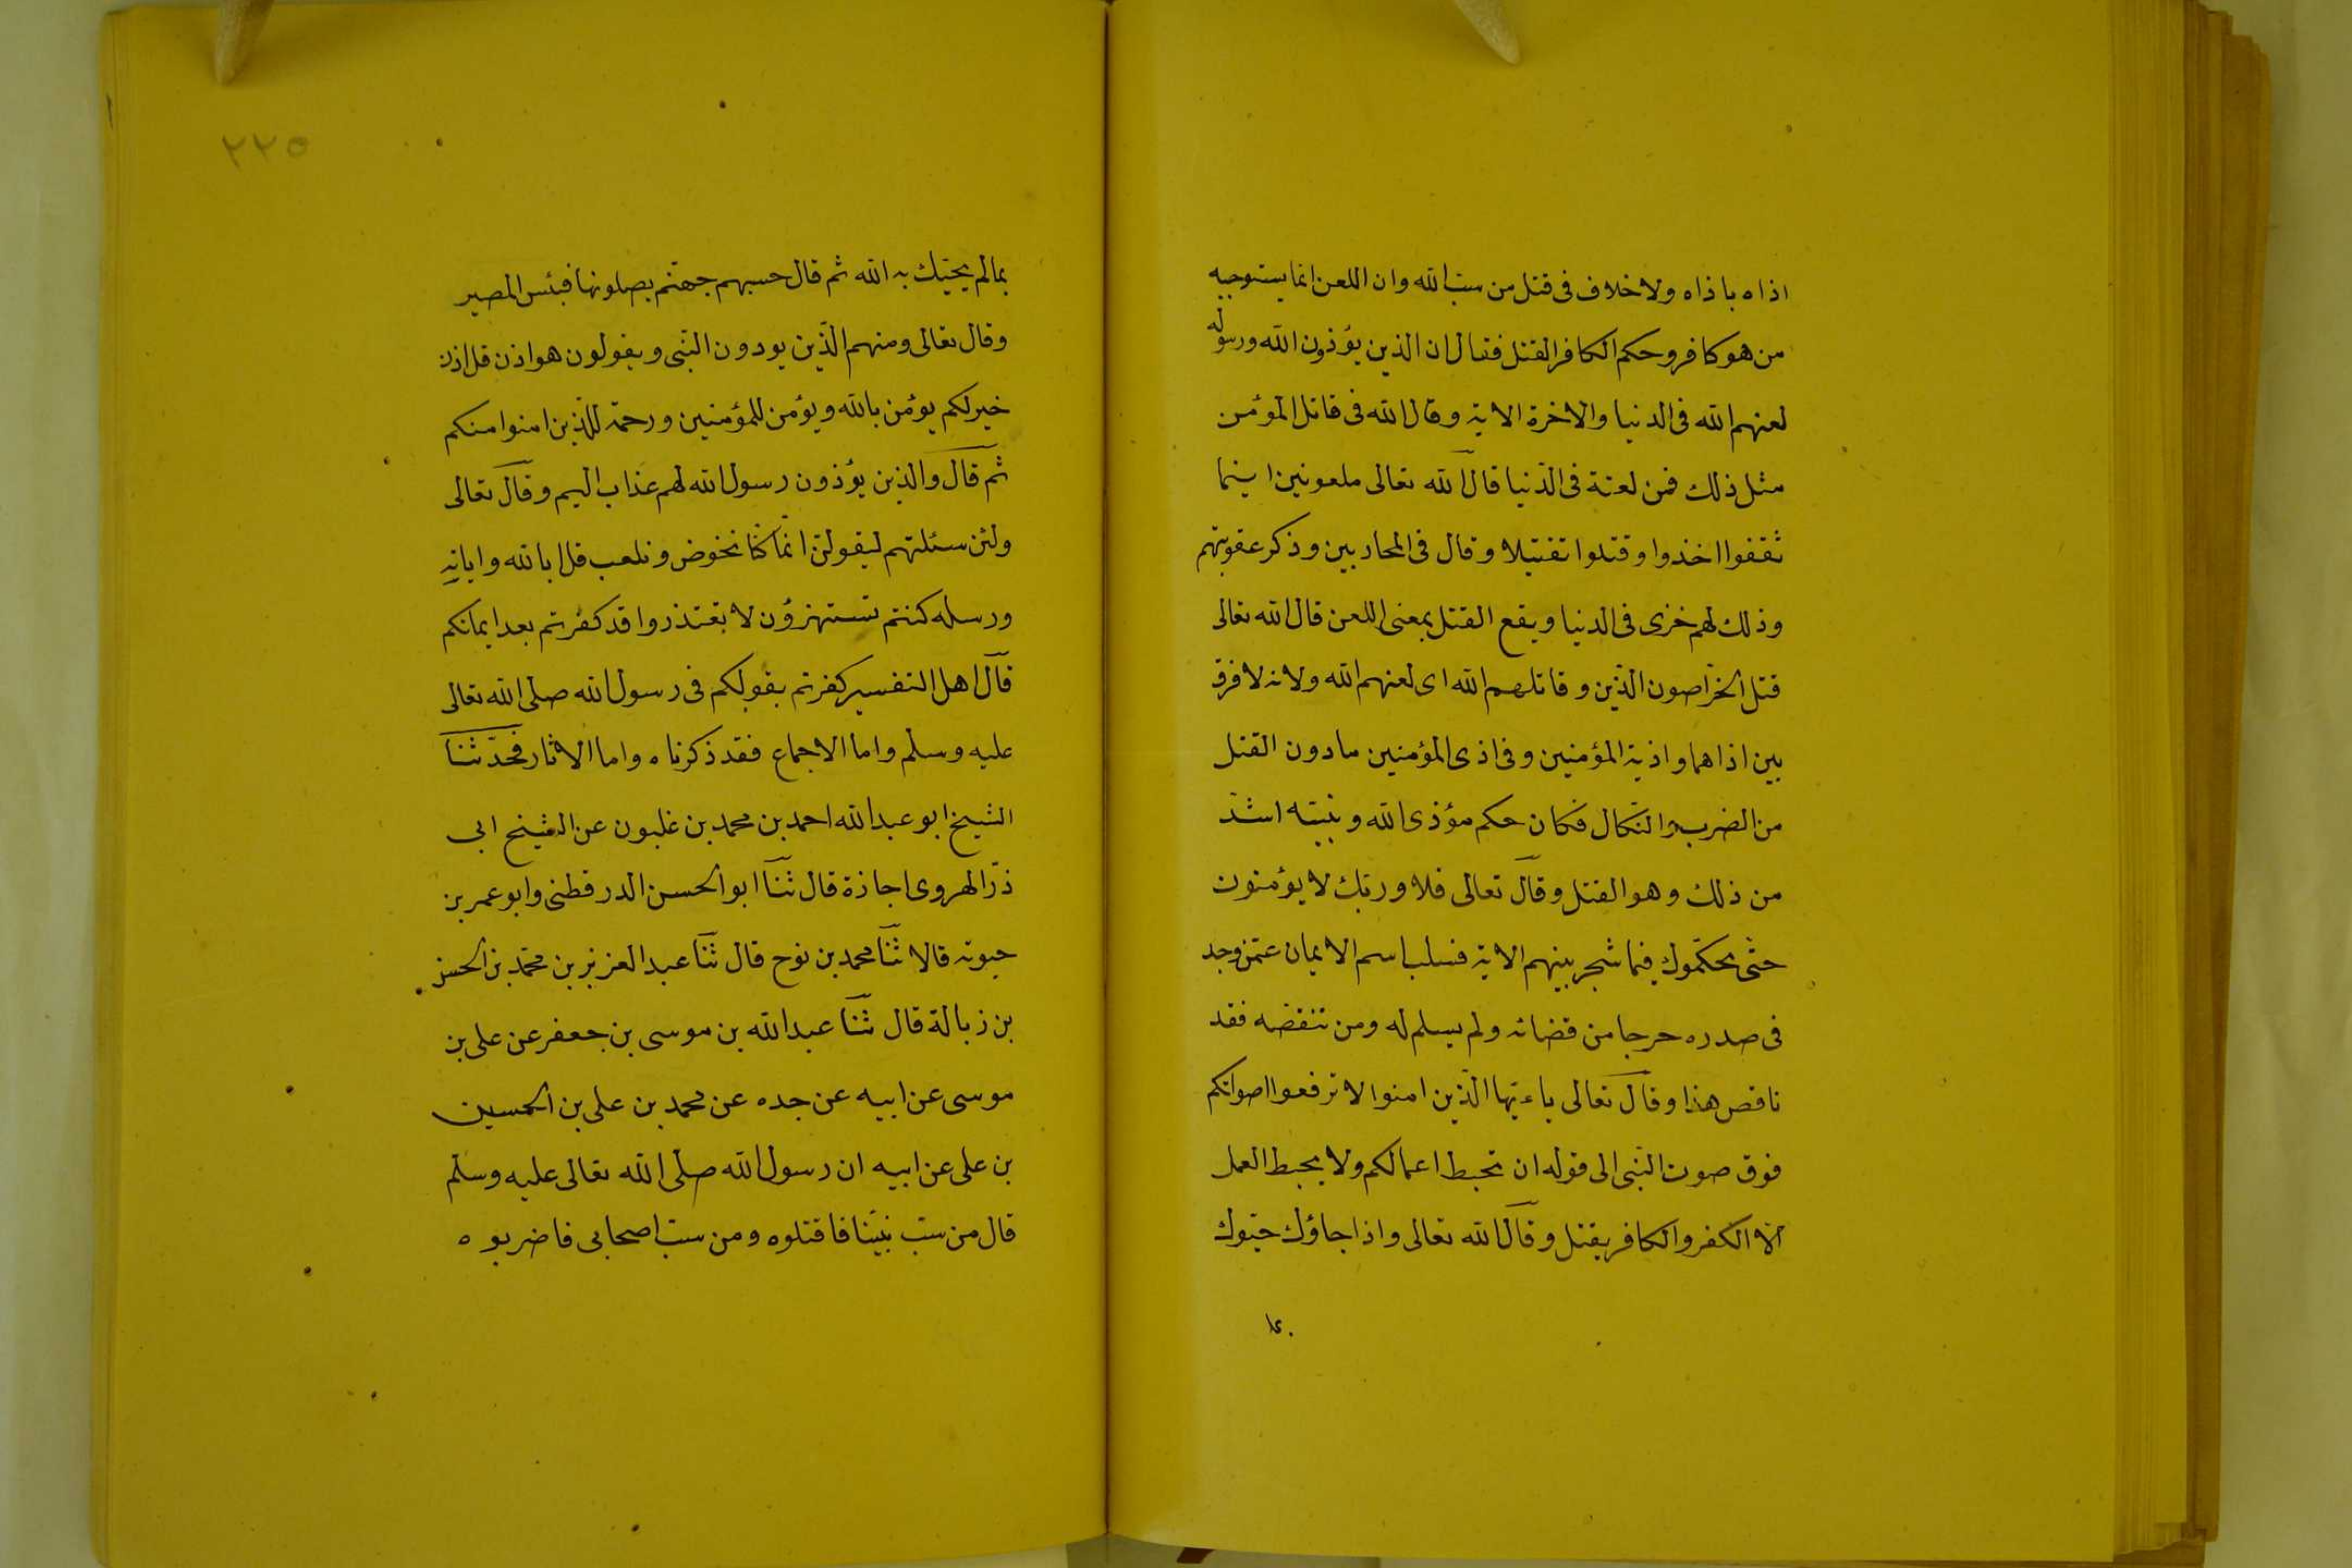 اذاه باذاه ولا خلاف فى قتل من سب الله وان اللعن انما يستوجبه
من هو كافر وحكم الكافر القتل فقال ان الذين يؤذون الله ورسوله
لعنهم الله فى الدنيا والاخرة الاية وقال الله فى قاتل المؤمن
مثل ذلك فمن لعنة فى الدّنيا قال الله تعالى ملعونين اينما
ثقفوا اخذوا وقتلوا تقتيلا وقال فى المحاربين وذكر عقوبتهم
وذلك لهم خزى فى الدنيا ويقع القتل بمعنى اللعن قال الله تعالى
قتل الخراصون الذّين وقاتلهم الله اى لعنهم الله ولانه لا فرق
بين اذاهما واذية المؤمنين وفى اذى المؤمنين مادون القتل
من الضرب والنكال فكان حكم مؤذى الله ونبيّه اشدّ
من ذلك وهو القتل وقال تعالى فلا وربّك لا يؤمنون
حتّى يحكّموك فيما شجر بينهم الاية فسلب اسم الايمان عمّن وجد
فى صدره حرجا من قضائه ولم يسلم له ومن تنقصه فقد
ناقص هذا وقال تعالى ياءيّها الّذين امنوا لا ترفعوا اصواتكم
فوق صوت النّبى الى قوله ان تحبط اعمالكم ولا يحبط العمل
الا الكفر والكافر يقتل وقال الله تعالى واذا جاؤك حيّوك
بما
٢٢٥
بمالم يحيّك به الله ثم قال حسبهم جهنّم يصلونها فبئس المصير
وقال تعالى ومنهم الّذين يوذون النّبى ويقولون هو اذن قل اذن
خير لكم يؤمن بالله ويؤمن للمؤمنين ورحمة للّذين امنوا منكم
ثم قال والذين يؤذون رسول الله لهم عذاب اليم وقال تعالى
ولئن سئلتهم ليقولنّ انّما كنّا نخوض ونلعب قل ابالله واياته
ورسله كنتم تستهزؤن لا تعتذروا قد كفرتم بعد ايمانكم
قال اهل التفسير كفرتم بقولكم فى رسول الله صلى الله تعالى
عليه وسلّم واما الاجماع فقد ذكرناه واما الاثار فحدّثنا
الشيخ ابو عبد الله احمد بن محمد بن غلبون عن الشيخ ابى
ذرّ الهروى اجازة قال ثنا ابو الحسن الدرقطنى وابو عمر بن
حيوته قالا ثنا محمد بن نوح قال ثنا عبد العزيز بن محمّد بن الحسن
بن زبالة قال ثنا عبد الله بن موسى بن جعفر عن على بن
موسى عن ابيه عن جده عن محمد بن على بن الحسين
بن على عن ابيه ان رسول الله صلّى الله تعالى عليه وسلّم
قال من سبّ نبيّنا فاقتلوه ومن سبّ اصحابى فاضربوه